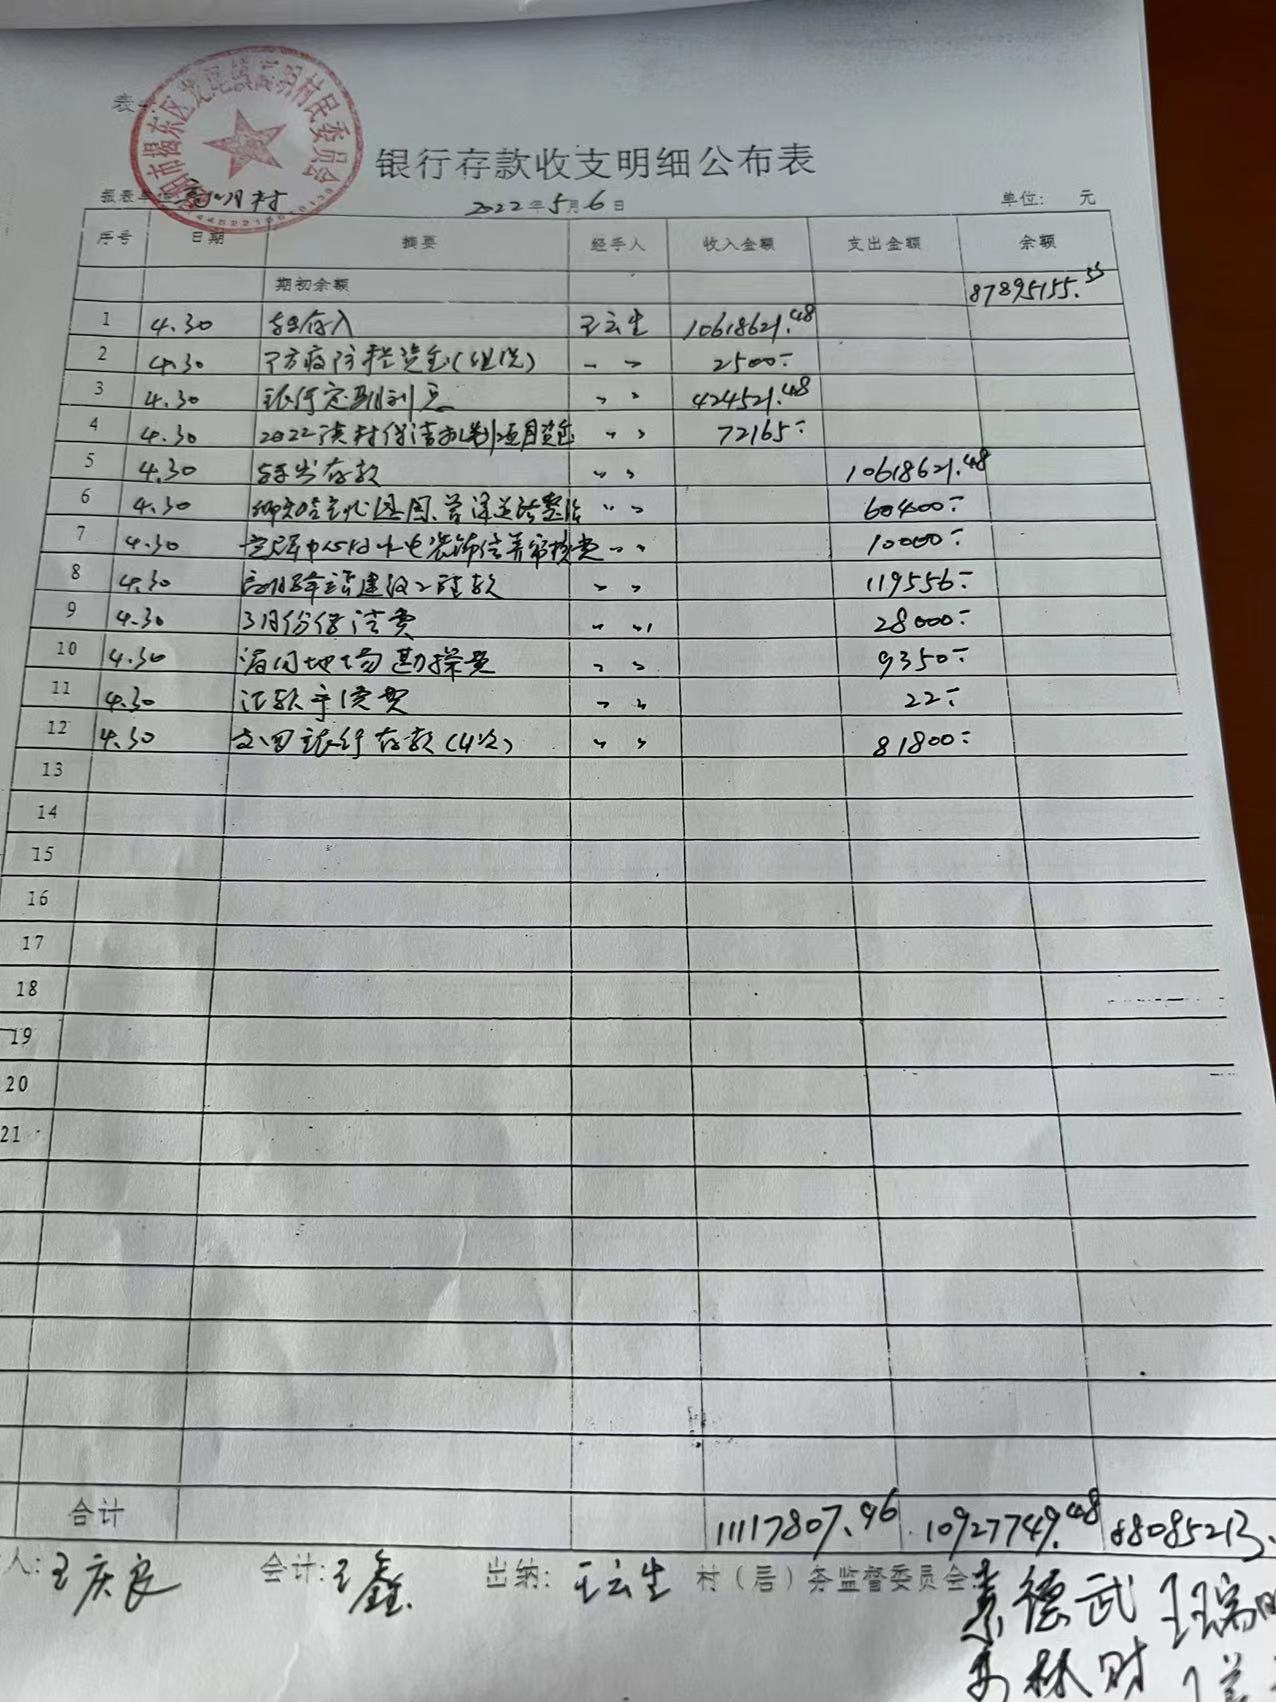 表
市揭东区龙尾镇高明村民委员会
银行存款收支明细公布表
报表单位 高明村 2022年5月6日 单位: 元
序号 日期 摘要 经手人 收入金额 支出金额 余额
期初余额 87895155.55
1 4.30 转存入 王云生 10618621.48
2 4.30 防疫防控资金 〃 〃 2500.-
3 4.30 银行定期利息 〃 〃 424521.48
4 4.30 2022 村保洁机制项目资金 〃 〃 72165.-
5 4.30 转出存款 〃 〃 10618621.48
6 4.30 〃 〃 60400.-
7 4.30 中心 水电装饰 审核费 〃 〃 10000.-
8 4.30 建设工程款 〃 〃 119556.-
9 4.30 3月份保洁费 〃 〃 28000.-
10 4.30 地场勘探费 〃 〃 9350.-
11 4.30 汇款手续费 〃 〃 22.-
12 4.30 支回银行存款(4次) 〃 〃 81800.-
13
14
15
16
17
18
19
20
21
合计 11117807.96 10927749.48 88085213.
人: 王庆良 会计: 王鑫 出纳: 王云生 村(居)务监督委员会 德武 王瑞
林财